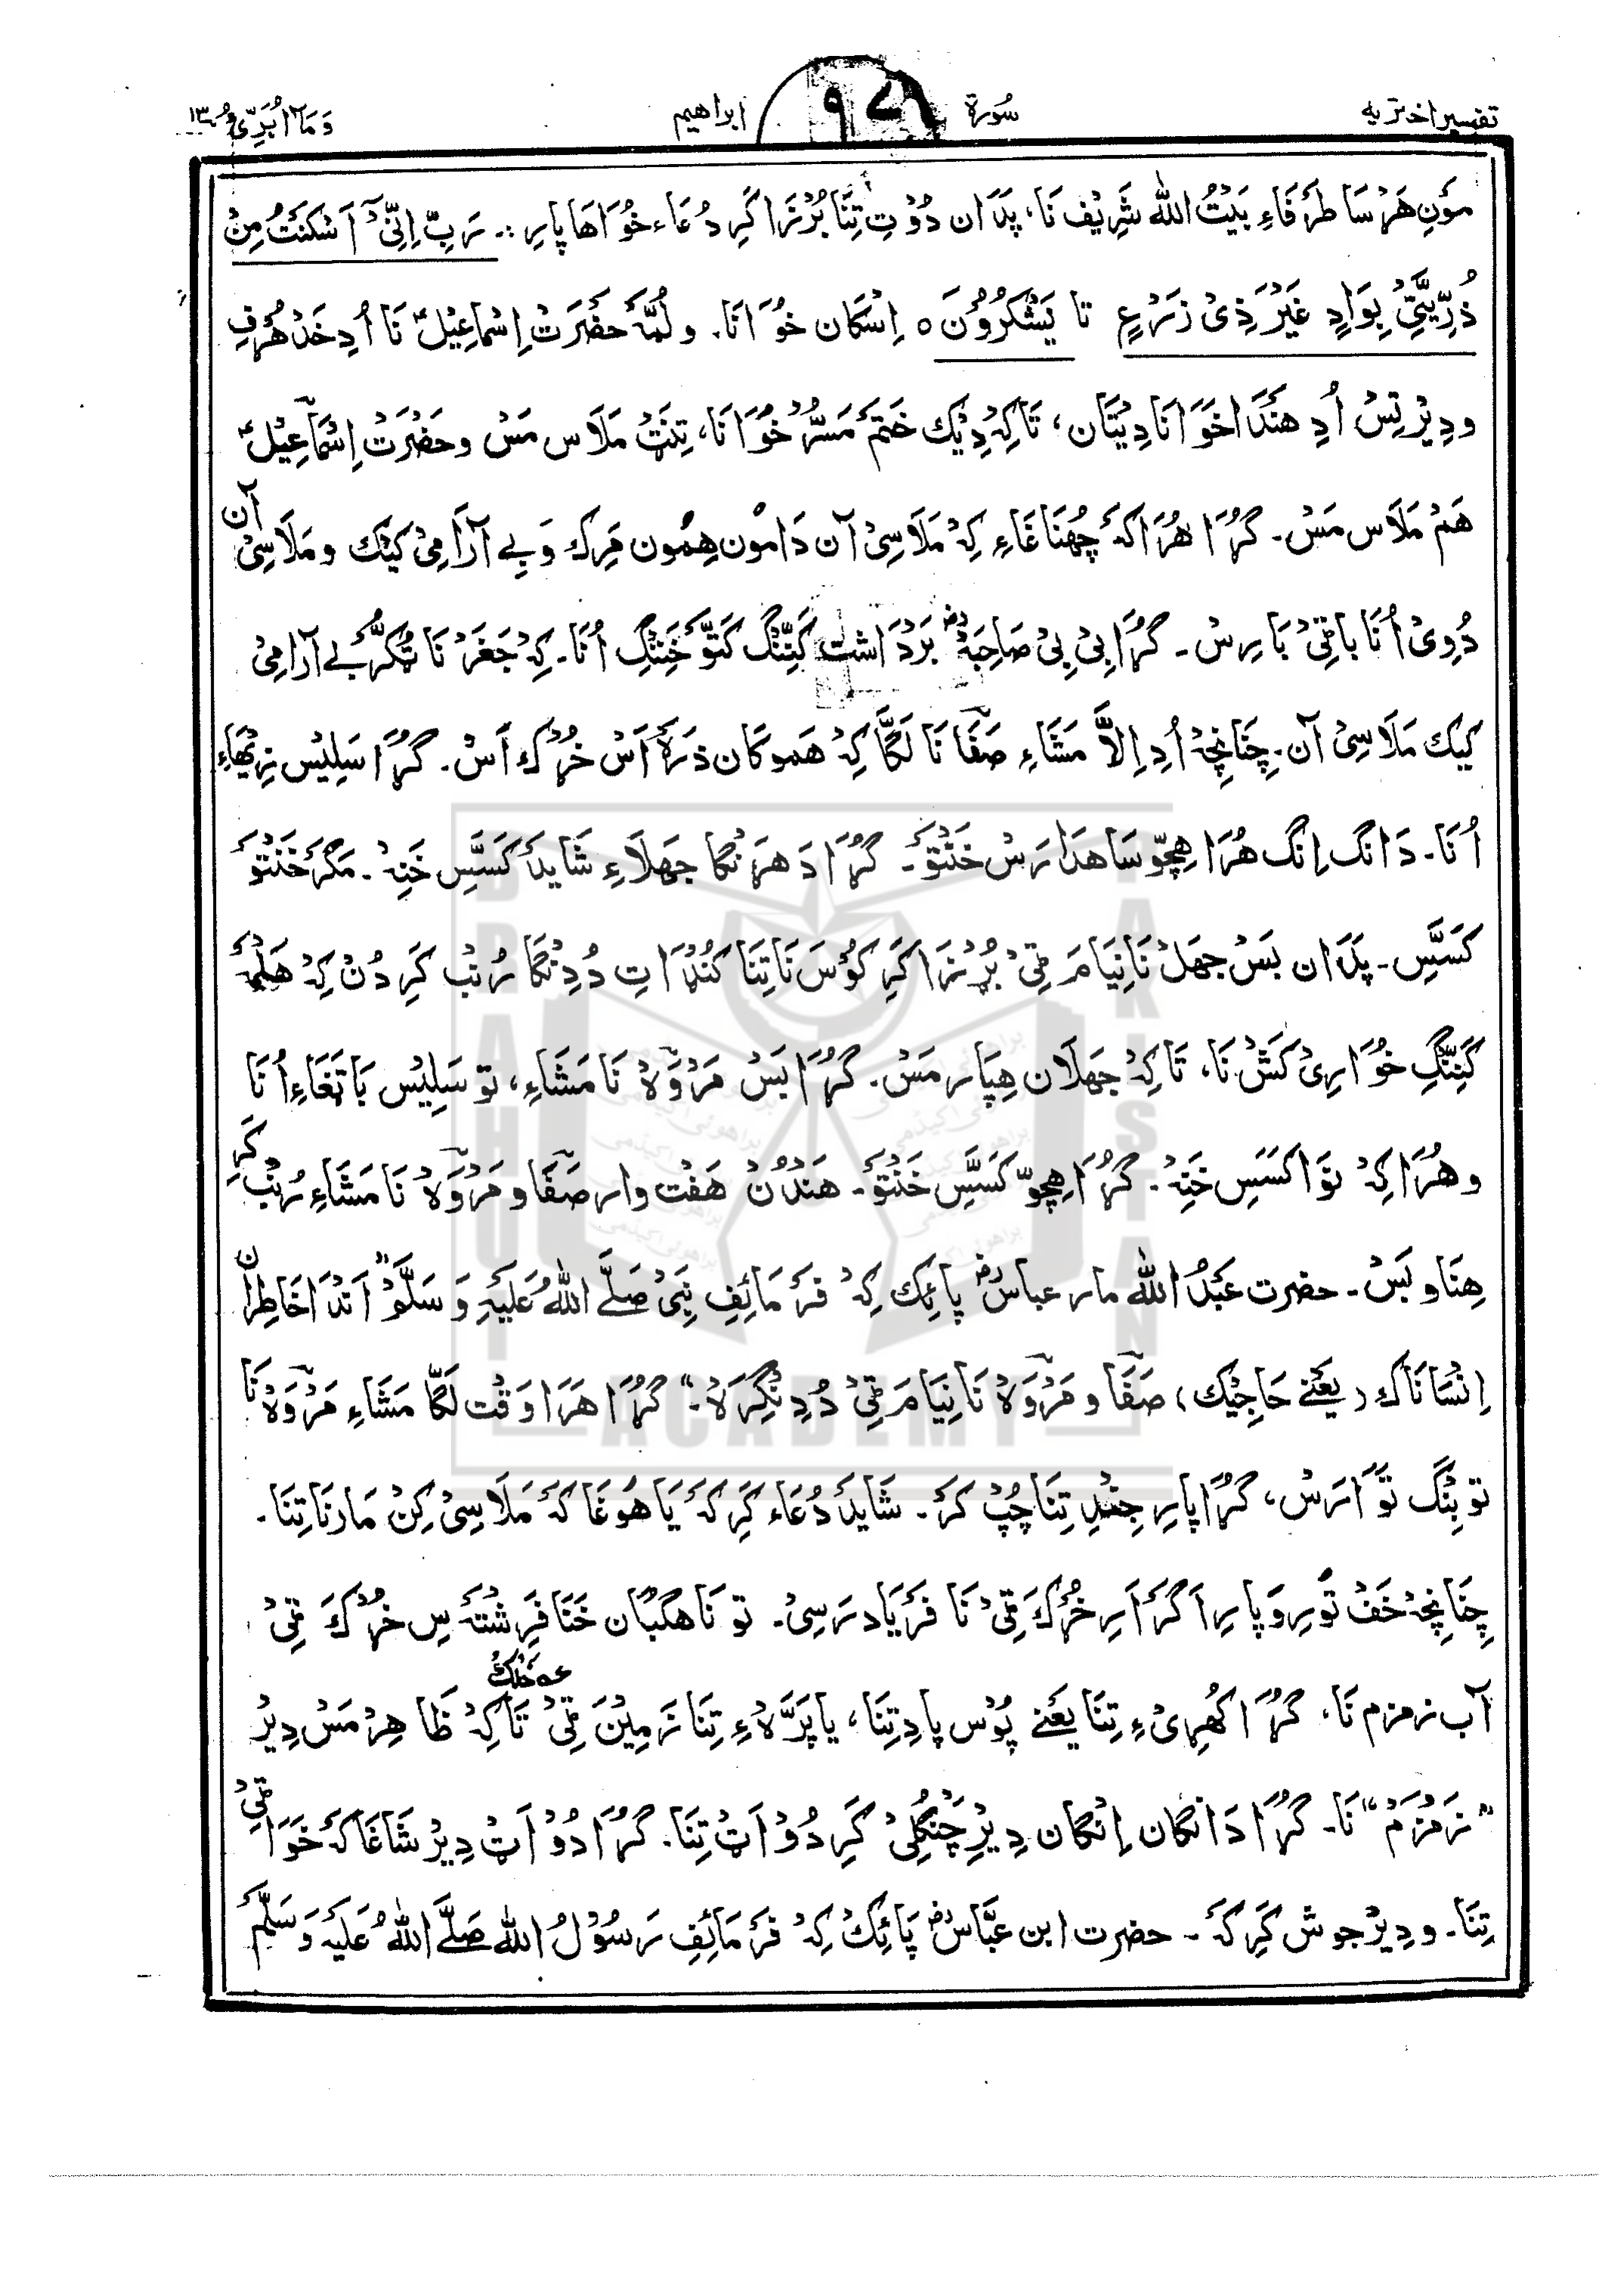 تفسیر اختریه
سُورة
٩٧٨
ابراهیم
وَمَآ اُبَرِّیُٔ ١٣
مَونِ هَرْسَا طَرَفَاءِ بَیْتُ اللّٰه شَرِیْف نَا، پَدَان دُوْتِ تِنَّا بُرْزَا کَرِ دُعَاء خُوَاهَا پارِ :۔ رَبِّ اِنِّیْٓ اَسْکَنْتُ مِنْ
ذُرِّیَّتِیْ بِوَادٍ غَیْرَ ذِیْ زَرْعٍ تا یَشْکُرُوْنَ ٥ اِسْکَان خُوَانَا. و لُمَّهْ حَضْرَتْ اِسْمَاعِیْلؑ نَا اُدِ خَدْ هُرْفِ
و دِیْرْ تِسْ اُدِ هَنْدَا خَوَانَا دِیْتَان، تَاکِهْ دِیْک خَتْم مَسُّرْ خُوَانَا، تِنَتْ مَلَاس مَسْ و حَضْرَتْ اِسْمَاعِیْلؑ
هَمْ مَلَاس مَسْ۔ گُڑَا هُرَاکَهْ چُهْنَاغَاءِ کِهْ مَلَاسِیْ آن دَامُون هِمُون مَرِک وَ بِے آرَامِیْ کَیْک و مَلَاسِیْ آن
دُوِیْ اُنَا باقِیْ بَارِسْ۔ گُڑَا بِیْ بِیْ صَاحِبَهؓ بَرْدَاشت کَنِّنْگ کَتَوْ خَنِنْگ اُنَا۔ کِهْ جَغَرْ نَا ٹُکُّرْ بے آرَامِیْ
کیک مَلَاسِیْ آن۔ چِنَانِچِهْ اُدِ اِلَّا مَشَاءِ صَفَا نَا لَگَّا کِهْ هَموکَان ذَرَهْ اَسْ خُرْک اَسْ. گُڑَا سَلِیْس زِیهَاءِ
اُنَا۔ دَانْگ اِنْگ هُرَا هِچّو سَاهدَارَسْ خَنْتَوْ۔ گُڑَا دَهرَنْگا جَهلَاءِ شَایَدْ کَسَّسِ خَنِهْ۔ مَگَرْ خَنْتَوْ
کَسَّسِ۔ پَدَان بَسْ جَهَلْ نَا نِیَامَ ٹِیْ بُرْزَا کَرِ کَوْسَ نَا تِنَا کُنْڈَاتِ دُدِنْگا رُنْب کَرِ دُنْ کِهْ هَلْمَهْ
کَنِّنْگِ خُوَارِیْ کَشْ نَا، تَاکِهْ جَهلَان هِیپَار مَسْ. گُڑَا بَسْ مَرْوَهْ نَا مَشَاءِ، تو سَلِیْس بَا تَغَاءِ اُنَا
و هُرَا کِهْ تَوَا کَسَسِ خَنِهْ۔ گُڑَا هِچّو کَسَّسِ خَنْتَوْ۔ هَنْدُنْ هَفْت وار صَفَا و مَرْوَهْ نَا مَشَاءِ رُنْب کَرِ
هِنَا و بَسْ۔ حضرت عَبْدُ اللّٰه مار عباسؓ پائِک کِهْ فَرْمَائِفِ نَبِیْ صَلَّے اللّٰهُ عَلَیْهِ وَسَلَّمْ" اَنْدَا خَاطِرَان
اِنْسَانَاک (یَعْنے حَاجِیْک) صَفَا و مَرْوَهْ نَا نِیَامَ ٹِیْ دُدِنْگِرَهْ۔" گُڑَا هَرَا وَقْت لَگَّا مَشَاءِ مَرْوَهْ نَا
تو بِنْگ تَوَّارَسْ، گُڑَا پارِ جِنْدِ تِنَا چُپْ کَرْ۔ شَایَدْ دُعَاء کَرِکَهْ یَا هوغَاکَهْ مَلَاسِیْ کِنْ مَارنَا تِنَا.
چِنَانِچِهْ خَفْ تَورِ وَ پارِ اَگَرْ اَرِ خُرْکَ ٹِیْ نَا فَرْیَاد رَسِیْ۔ تو نَاهگَهَان خَنَا فَرِشْتَهْ سِ خُرْکَ ٹِیْ
آب زمزم نَا. گُڑَا کُهرِیْ ءِ تِنَا یَعْنے پُوْس پادِ تِنَا، یا پَرَّهْ ءِ تِنَا زَمِیْنَ ٹِیْ خَلِکْ تَاکِهْ ظَاهِرْ مَسْ دِیْر
"زَمْزَمْ" نَا۔ گُڑَا دَانْگان اِنْگان دِیْرِ چَنْگَلِیْ کَرِ دُوْ اَتْ تِنَا. گُڑَا دُوْ اَتْ دِیْر شَاغَاکَهْ خَوَا ٹِیْ
تِنَا۔ و دِیْرْ جوش کَرِکَهْ ۔ حضرت ابن عَبَّاسؓ پَائِکْ کِهْ فَرْمَائِفِ رَسُوْلُ اللّٰه صَلَّے اللّٰهُ عَلَیْهِ وَسَلَّمْ
BRAHUI ACADEMY PAKISTAN